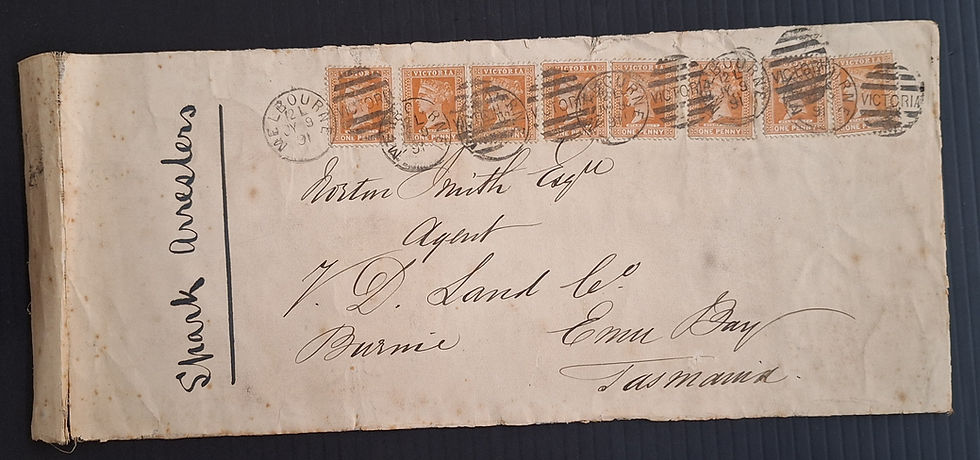 VICTORIA VICTORIA VICTORIA VICTORIA
ONE PENNY ONE PENNY ONE PENNY ONE PENNY
MELBOURNE
2 L
JY 9
91
VICTORIA
Spark Arresters
Norton Smith Esqre
Agent
V. D. Land Co.
Burnie Emu Bay
Tasmania.